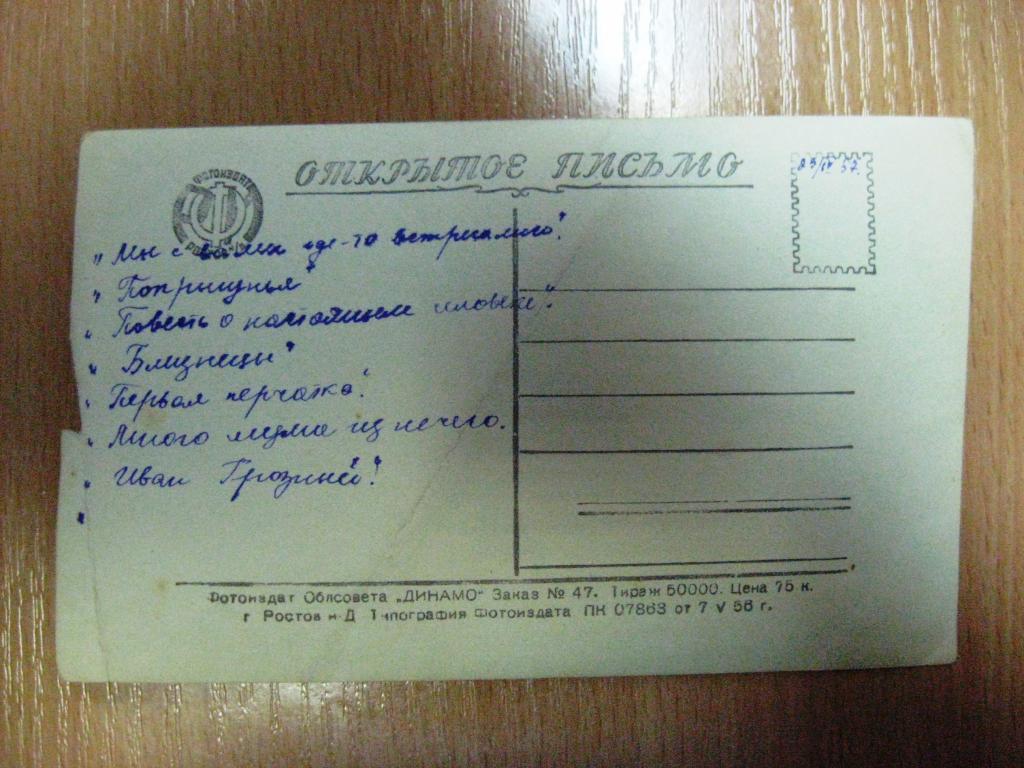 ОТКРЫТОЕ ПИСЬМО
ФОТОИЗДАТ
23/IV 57.
„Мы с вами где-то встречались".
„Попрыгунья"
„Повесть о настоящем человеке".
„Близнецы"
„Первая перчатка".
„Много шума из ничего.
„Иван Грозный"!
Фотоиздат Облсовета „ДИНАМО" Заказ № 47. Тираж 50000. Цена 75 к.
г Ростов н-Д Типография Фотоиздата ПК 07863 от 7 V 56 г.